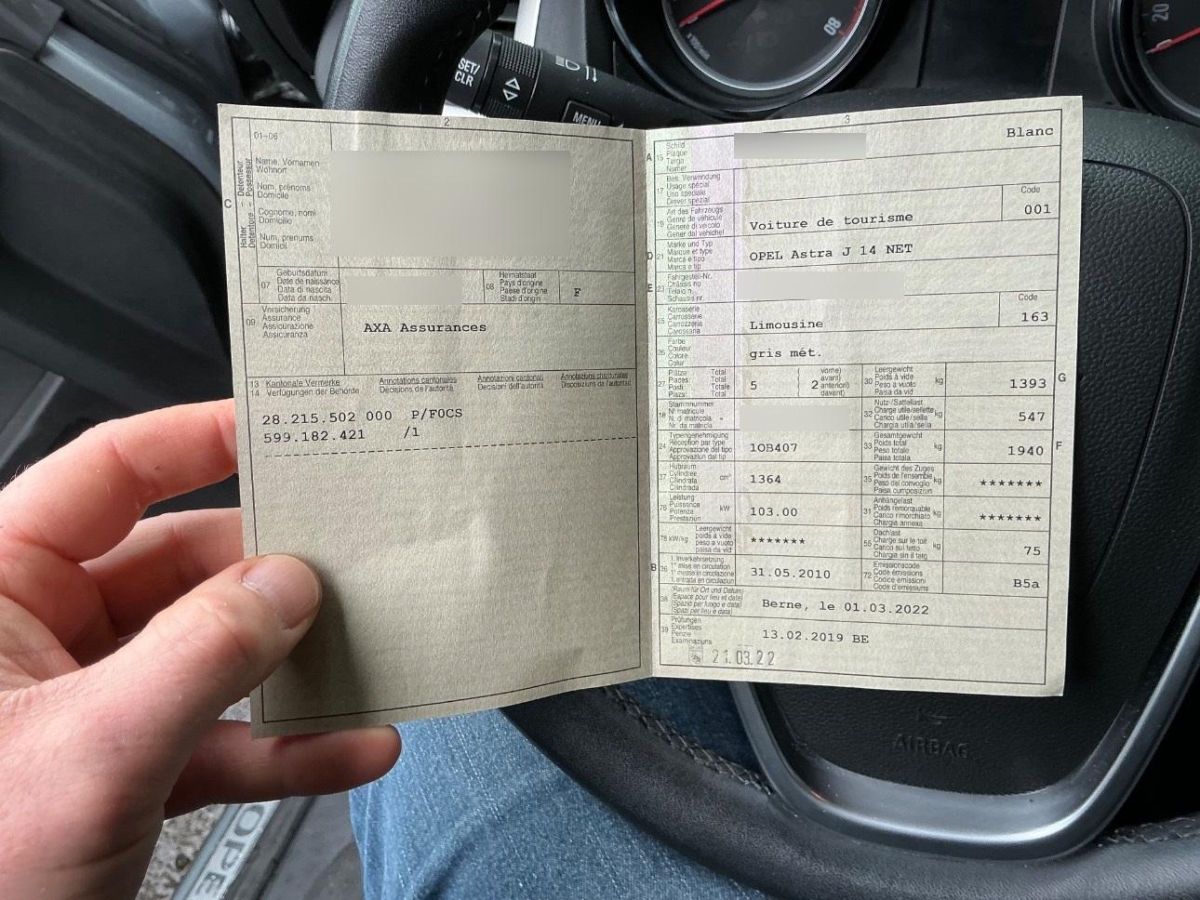 SET/
CLR
MENU
80
20
2
01-06
Halter - Détenteur
Detentore - Possessur
C
Name, Vornamen
Wohnort
Nom, prénoms
Domicile
Cognome, nomi
Domicilio
Num, prenums
Domicil
07
Geburtsdatum
Date de naissance
Data di nascita
Data da nasch.
08
Heimatstaat
Pays d'origine
Paese d'origine
Stadi d'origin
F
09
Versicherung
Assurance
Assicurazione
Assicuranza
AXA Assurances
13
14
Kantonale Vermerke
Verfügungen der Behörde
Annotations cantonales
Décisions de l'autorité
Annotazioni cantonali
Decisioni dell'autorità
Annotaziuns chantunalas
Disposiziuns da l'autoritad
28.215.502 000 P/FOCS
599.182.421 /1
3
A
15
Schild
Plaque
Targa
Numer
Blanc
17
Bes. Verwendung
Usage spécial
Uso speciale
Diever spezial
19
Art des Fahrzeugs
Genre de véhicule
Genere di veicolo
Gener dal vehichel
Voiture de tourisme
Code
001
D
21
Marke und Typ
Marque et type
Marca e tipo
Marca e tip
OPEL Astra J 14 NET
E
23
Fahrgestell-Nr.
Châssis no
Telaio n.
Schassis nr.
25
Karosserie
Carrosserie
Carrozzeria
Carossaria
Limousine
Code
163
26
Farbe
Couleur
Colore
Colur
gris mét.
27
Plätze: Total
Places: Total
Posti: Totale
Plazs: Total
5
2
vorne)
avant)
anteriori)
davant)
30
Leergewicht
Poids à vide
Peso a vuoto
Paisa da vid
kg
1393
G
18
Stammnummer
N° matricule
N. di matricola
Nr. da matricla
32
Nutz-/Sattellast
Charge utile/sellette
Carico utile/sella
Chargia utila/sella
kg
547
24
Typengenehmigung
Réception par type
Approvazione del tipo
Approvaziun dal tip
1OB407
33
Gesamtgewicht
Poids total
Peso totale
Paisa totala
kg
1940
F
37
Hubraum
Cylindrée
Cilindrata
Cilindrada
cm³
1364
35
Gewicht des Zuges
Poids de l'ensemble
Peso del convoglio
Paisa cumposiziun
kg
*******
76
Leistung
Puissance
Potenza
Prestaziun
kW
103.00
31
Anhängelast
Poids remorquable
Carico rimorchiato
Chargia annexa
kg
*******
78
kW/kg
Leergewicht
poids à vide
peso a vuoto
paisa da vid
*******
55
Dachlast
Charge sur le toit
Carico sul tetto
Chargia sin il tetg
kg
75
B
36
1. Inverkehrsetzung
1re mise en circulation
1a messa in circolazione
1. entrada en circulaziun
31.05.2010
72
Emissionscode
Code émissions
Codice emissioni
Code d'emissiuns
B5a
38
Raum für Ort und Datum
(Espace pour lieu et date)
Spazio per luogo e data)
Spazi per lieu e data)
Berne, le 01.03.2022
39
Prüfungen
Expertises
Perizie
Examinaziuns
13.02.2019 BE
21.03.22
AIRBAG
OPE